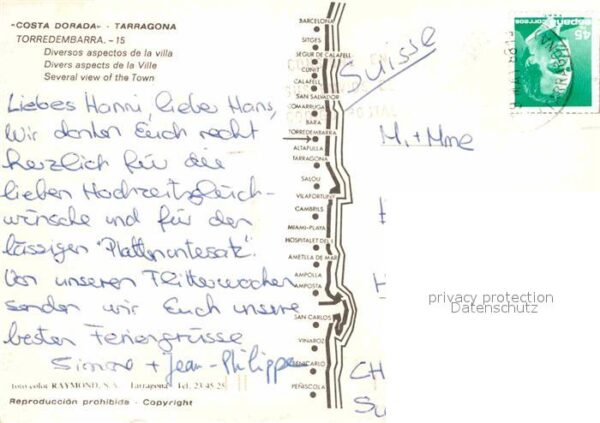 "COSTA DORADA" - TARRAGONA
TORREDEMBARRA. - 15
Diversos aspectos de la villa
Divers aspects de la Ville
Several view of the Town
Liebes Hanni, lieber Hans,
Wir danken Euch recht
herzlich für die
lieben Hochzeitsglück-
wünsche und für den
lässigen "Plattenuntesatz".
Von unseren Flitterwochen
senden wir Euch unsere
besten Feriengrüsse
Simone + Jean-Philippe
foto color RAYMOND, S.A. Tarragona Tel. 23 45 25
Reproducción prohibida - Copyright
BARCELONA
SITGES
SEGUR DE CALAFELL
CUNIT
CALAFELL
SAN SALVADOR
COMARRUGA
BARA
TORREDEMBARRA
ALTAFULLA
TARRAGONA
SALOU
VILAFORTUNY
CAMBRILS
MIAMI-PLAYA
HOSPITALET DEL I.
AMETLLA DE MAR
AMPOLLA
AMPOSTA
SAN CARLOS
VINAROZ
BENICARLO
PEÑISCOLA
Suisse
45
españa
correos
M. + Mme
CH
Su
privacy protection
Datenschutz